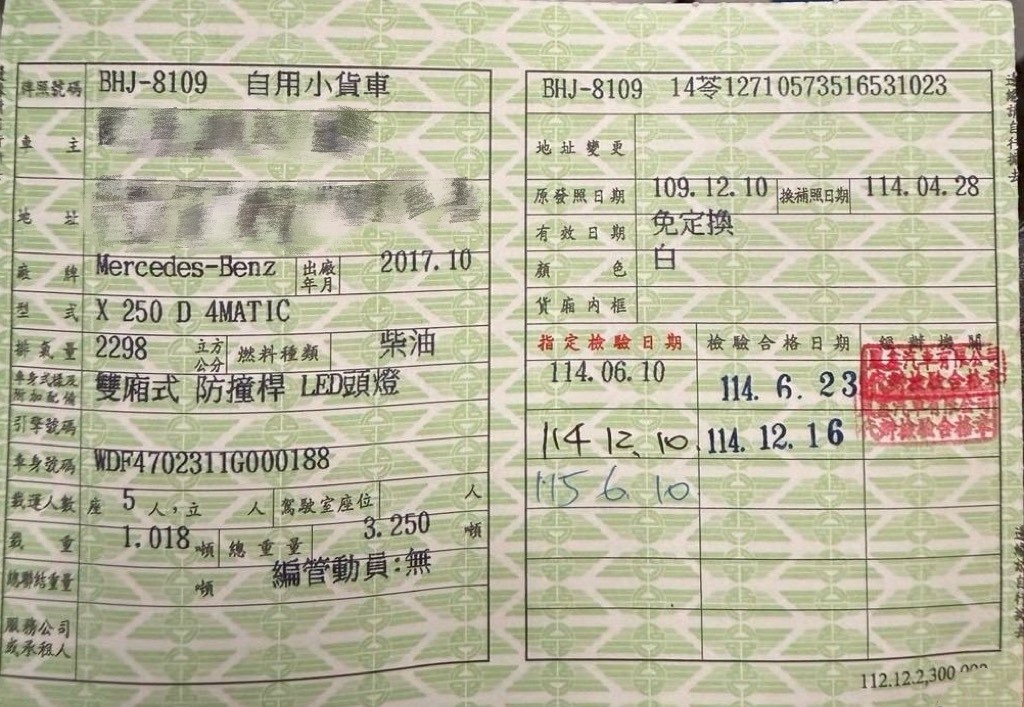 牌照號碼 BHJ-8109 自用小貨車
車主
地址
廠牌 Mercedes-Benz 出廠年月 2017.10
型式 X 250 D 4MATIC
排氣量 2298 立方公分 燃料種類 柴油
車身式樣及附加配備 雙廂式 防撞桿 LED頭燈
引擎號碼
車身號碼 WDF4702311G000188
載運人數 座 5 人,立 人 駕駛室座位 人
載重 1.018 噸 總重量 3.250 噸
總聯結重量 噸 編管動員:無
服務公司或承租人
BHJ-8109 14苓12710573516531023
地址變更
原發照日期 109.12.10 換補照日期 114.04.28
有效日期 免定換
顏色 白
貨廂內框
指定檢驗日期 檢驗合格日期 經辦機關
114.06.10 114.6.23
114 12.10. 114.12.16
115 6. 10
112.12.2,300